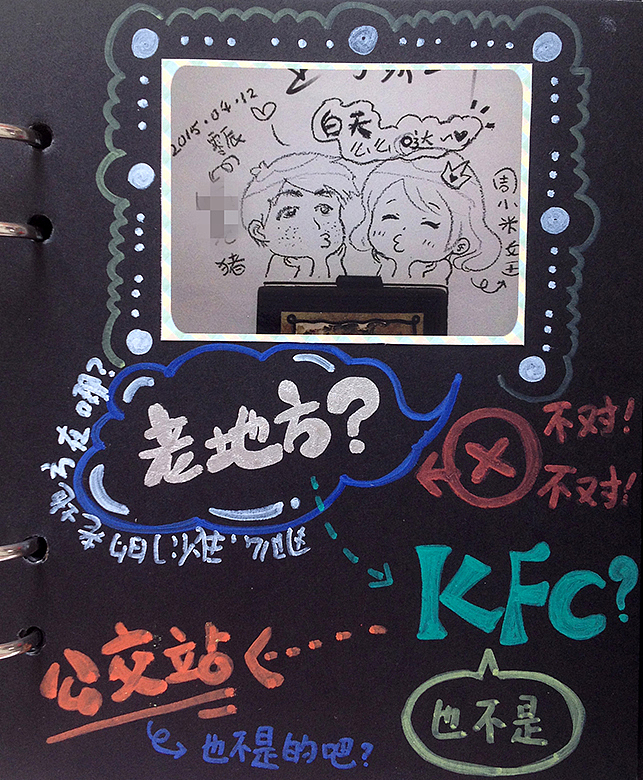 2015.04.12
白天
么么哒~
雪辰
の
猪
周小米女王
老地方?
不对!
不对!
KFC?
也不是
公交站
也不是的吧?